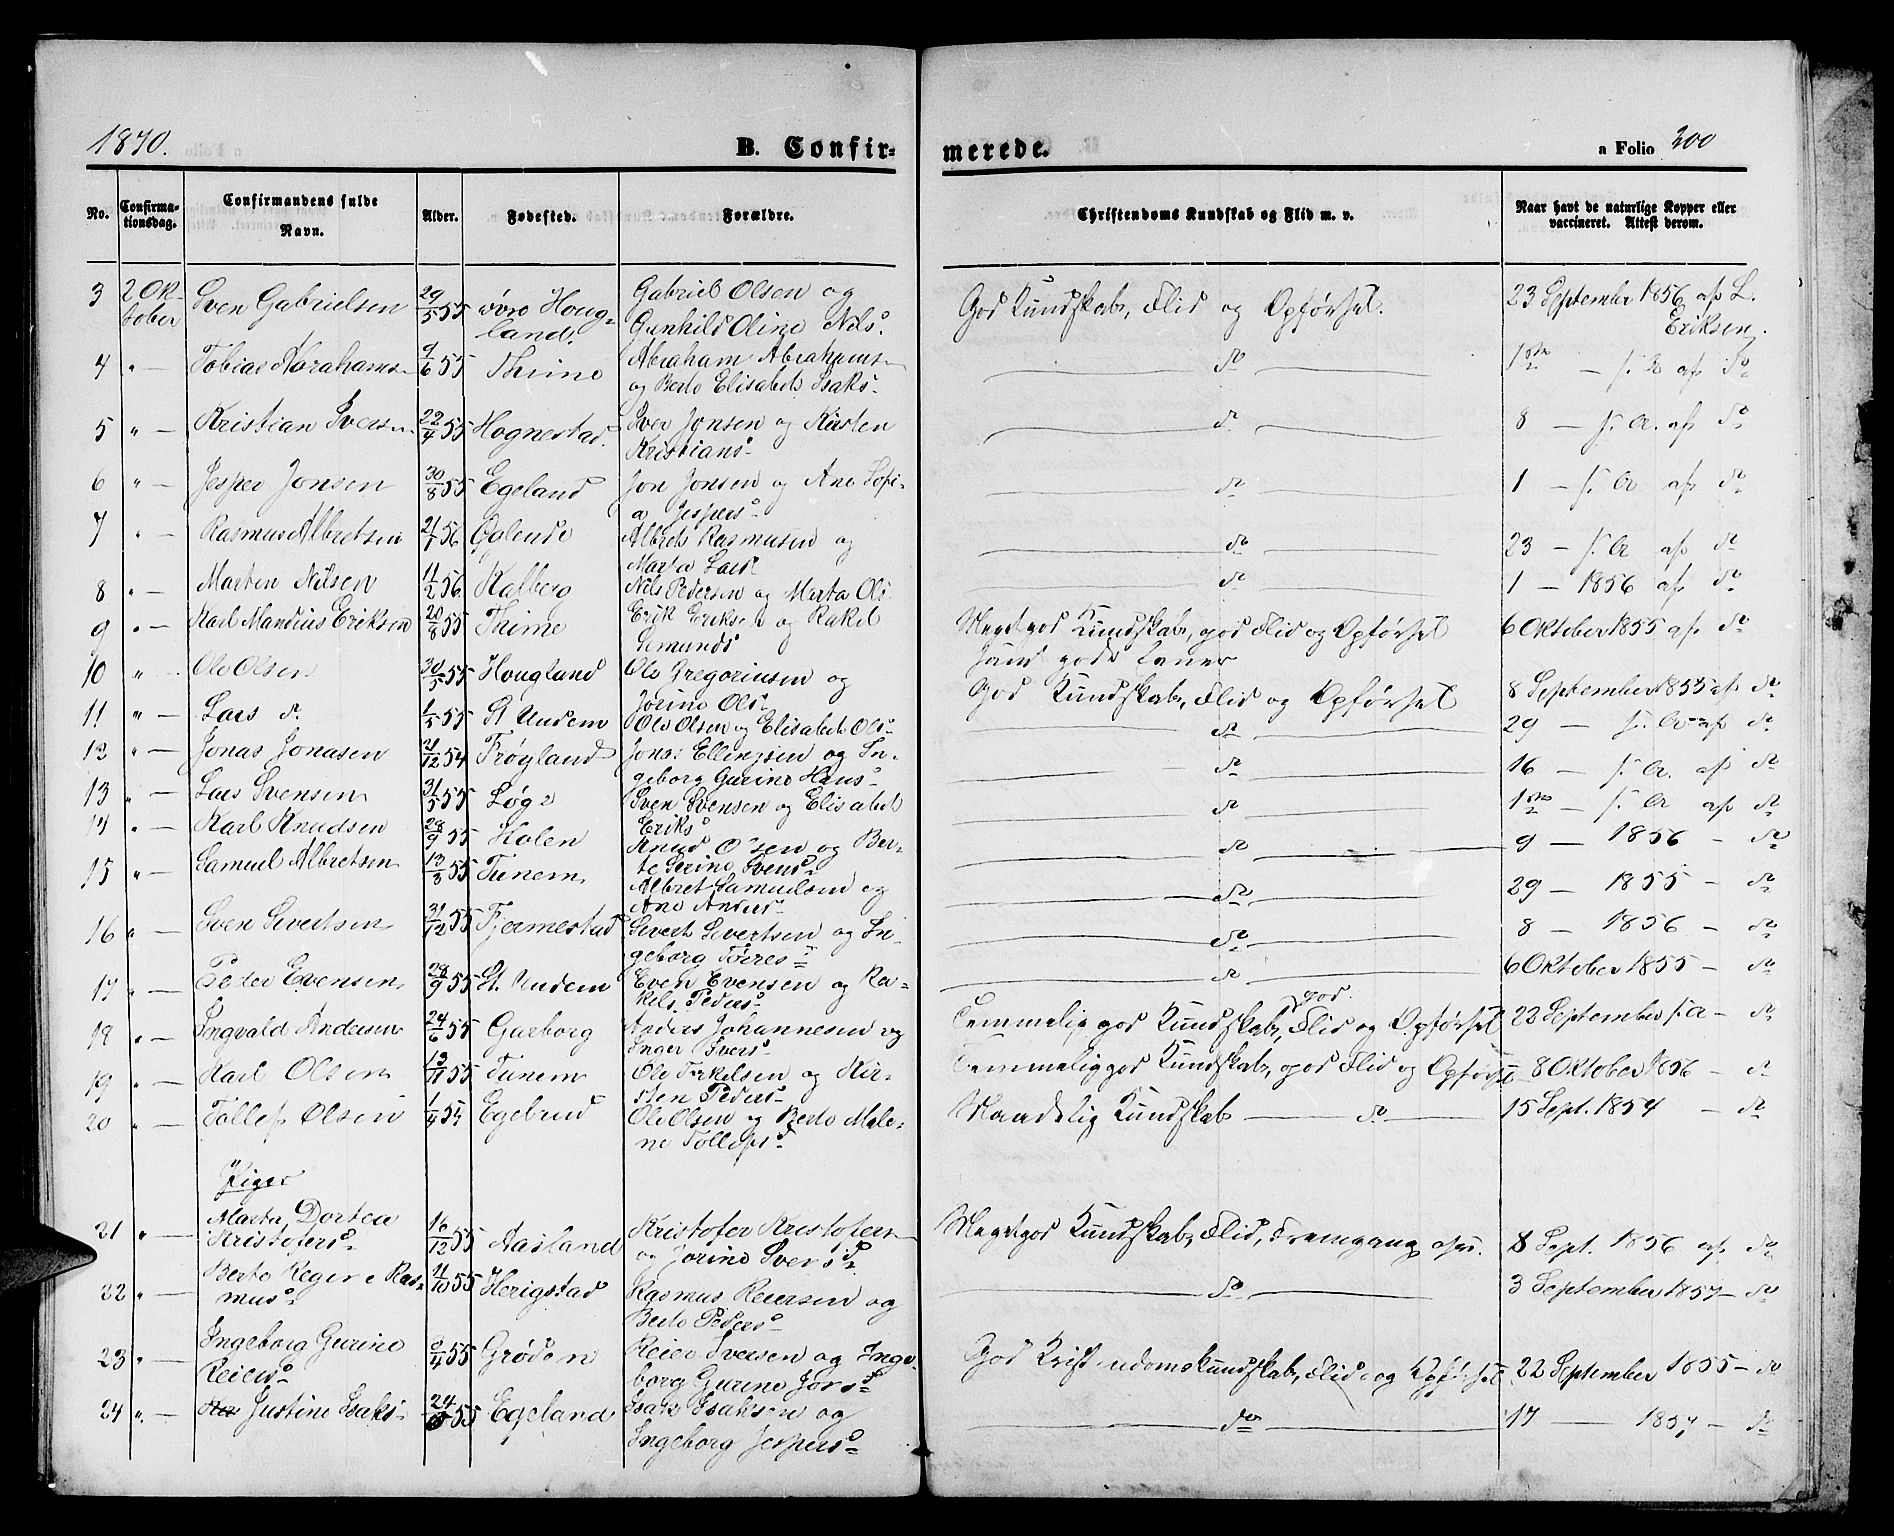 1870.
B. Confirmerede.
a Folio 200
No. Confirmationsdag. Confirmandens fulde Navn. Alder. Fødested. Forældre. Christendoms Kundskab og Flid m. v. Naar havt de naturlige Kopper eller vaccineret. Attest derom.
3 2 Oktober Sven Gabrielsen 29/5 55 Hougland. Gabriel Olsen og Gunhild Oline Nils. God Kundskab, Flid og Opførsel. 23 September 1856 af L. Eriksen.
4 " — Tobias Abrahams 9/6 55 Thime Abraham Abrahams og Berte Elisabet Isaks. — do — 1ste — s. A af do
5 " — Kristian Ivers 22/4 55 Hognestad. Iver Jonsen og Kirsten Kristians — do — 8 — s. A. af do
6 " — Jesper Jonsen 30/8 55 Egeland Jon Jonsen og Ane Sofia Jespers — do — 1 — s. A af do
7 " — Rasmus Albretsen 21/1 56 Øglende Albret Rasmusen og Marta Lars — do — 23 — s. A af do
8 " — Marten Nilsen 11/2 56 Kalberg Nils Pedersen og Marta Ols — do — 1 — 1856 af do
9 " — Karl Mandius Eriksen 20/8 55 Thime Erik Eriksen og Rakel Semunds Megetgod Kundskab, god Flid og Opførsel samt gode Evner 6 Oktober 1855 af do
10 " Ole Olsen 30/5 55 Hougland Ole Gregoriusen og Jorine Ols. God Kundskab, Flid og Opførsel 8 September 1855 af do
11 " — Lars do. 1/5 55 St Undem Ole Olsen og Elisabet Ols — do — 29 — s. A af do
12 " — Jonas Jonasen 21/12 54 Frøyland Jonas Ellingsen og Ingeborg Gurine Hans — do — 16 — s. A. af do
13 " — Lars Svensen 31/5 55 Løge Sven Svensen og Elisabet Eriks — do — 1ste — s. A af do
14 " — Karl Knudsen 28/9 55 Holen Knud Olsen og Berte Serine Svends — do — 9 — 1856 — do
15 " — Samuel Albretsen 13/3 55 Tunem Albret Samuelsen og Ane Anders — do — 29 — 1855 — do
16 " — Sven Sivertsen 31/12 55 Fjermestad Sivert Sivertsen og Ingeborg Tørres — do — 8 — 1856 — do
17 " — Peder Evensen 28/9 55 St. Undem Even Evensen og Rakel Peders — do — 6 Oktober 1855 — do
18 " — Ingvald Andersen 24/6 55 Garborg Anders Johannesen og Inger Ivers Temmelig god Kundskab, god Flid og Opførsel 22 September s. A — do
19 " — Karl Olsen 13/11 55 Tunem Ole Torkelsen og Kirsten Peders Temmelig god Kundskab, god Flid og Opførsel 8 Oktober 1856 — do
20 " — Tollef Olsen 1/4 54 Egebrud Ole Olsen og Berte Malene Tollefs Maadelig Kundskab — do — 15 Sept. 1854 — do
Piger
21 " — Marta Dortea Kristofers 16/12 55 Aasland Kristofer Kristofers og Jorine Svens Megetgod Kundskab, Flid, Fremgang 8 Sept. 1856 af do
22 " — Berte Regine Rasmus 11/10 55 Herigstad Rasmus Reiersen og Berte Peders — do — 3 September 1857 — do
23 " — Ingeborg Gurine Reiers 2/4 55 Grødem Reier Iversen og Ingeborg Gurine Jørs God Kristendomskundskab, Flid og Opførsel 22 September 1855 — do
24 " — Justine Isaks 24/ 55 Egeland Isak Isaksen og Ingeborg Jespers — do — 17 — 1857 — do